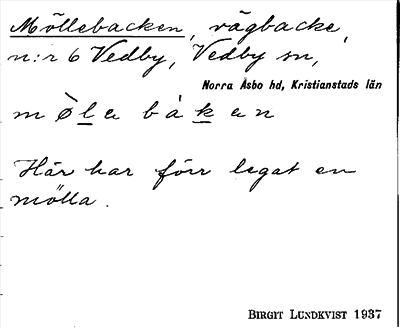 Möllebacken, vägbacke,
n:r 6 Vedby, Vedby sn,
Norra Åsbo hd, Kristianstads län
m ø̀ l a b à k a n
Här har förr legat en
mölla.
BIRGIT LUNDKVIST 1937